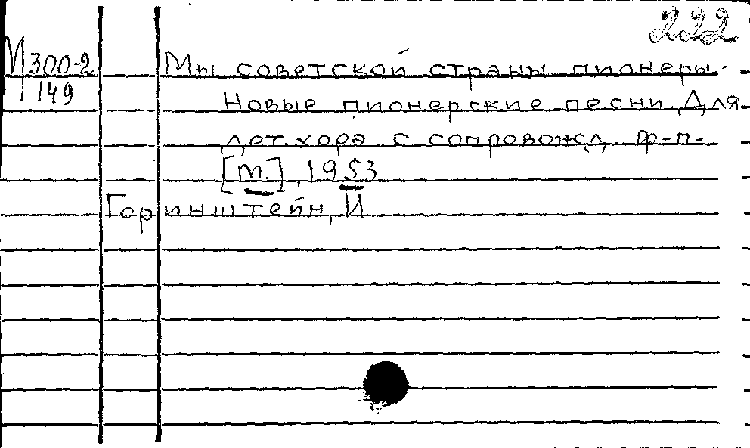 222
М 300-2
149
Мы советской страны пионеры.
Новые пионерские песни. Для
дет. хора с сопровожд. ф-п.
[М.], 1953
Горинштейн, И